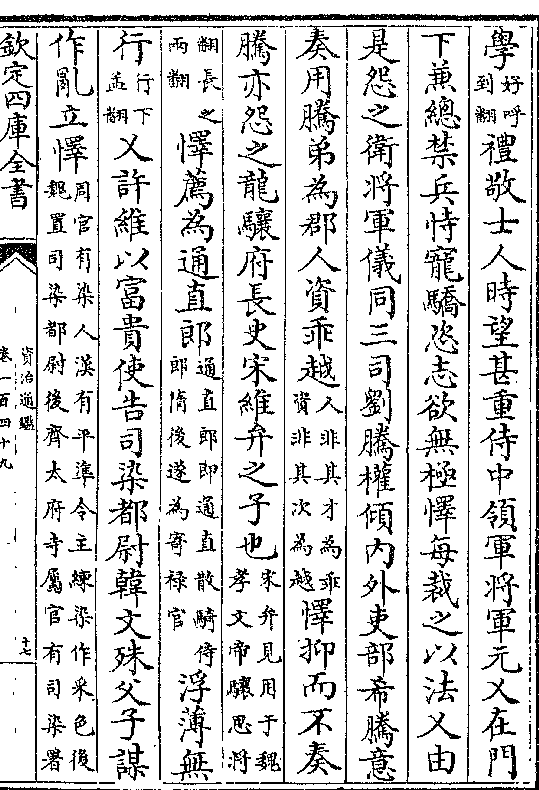 學好呼到翻禮敬士人時望甚重侍中領軍將軍元乂在門
下兼總禁兵恃寵驕恣志欲無極懌每裁之以法乂由
是怨之衛將軍儀同三司劉騰權傾內外吏部希騰意
奏用騰弟為郡人資乖越人非其才為乖資非其次為越懌抑而不奏
騰亦怨之龍驤府長史宋維弁之子也宋弁見用于魏孝文帝驤思將
翻長之兩翻懌薦為通直郎通直郎即通直散騎侍郎隋後遂為寄禄官浮薄無
行行下孟翻乂許維以富貴使告司染都尉韓文殊父子謀
作亂立懌周官有染人漢有平準令主練染作采色後魏置司染都尉後齊太府寺屬官有司染署
欽定四庫全書
資治通鑑
卷一百四十九
十七